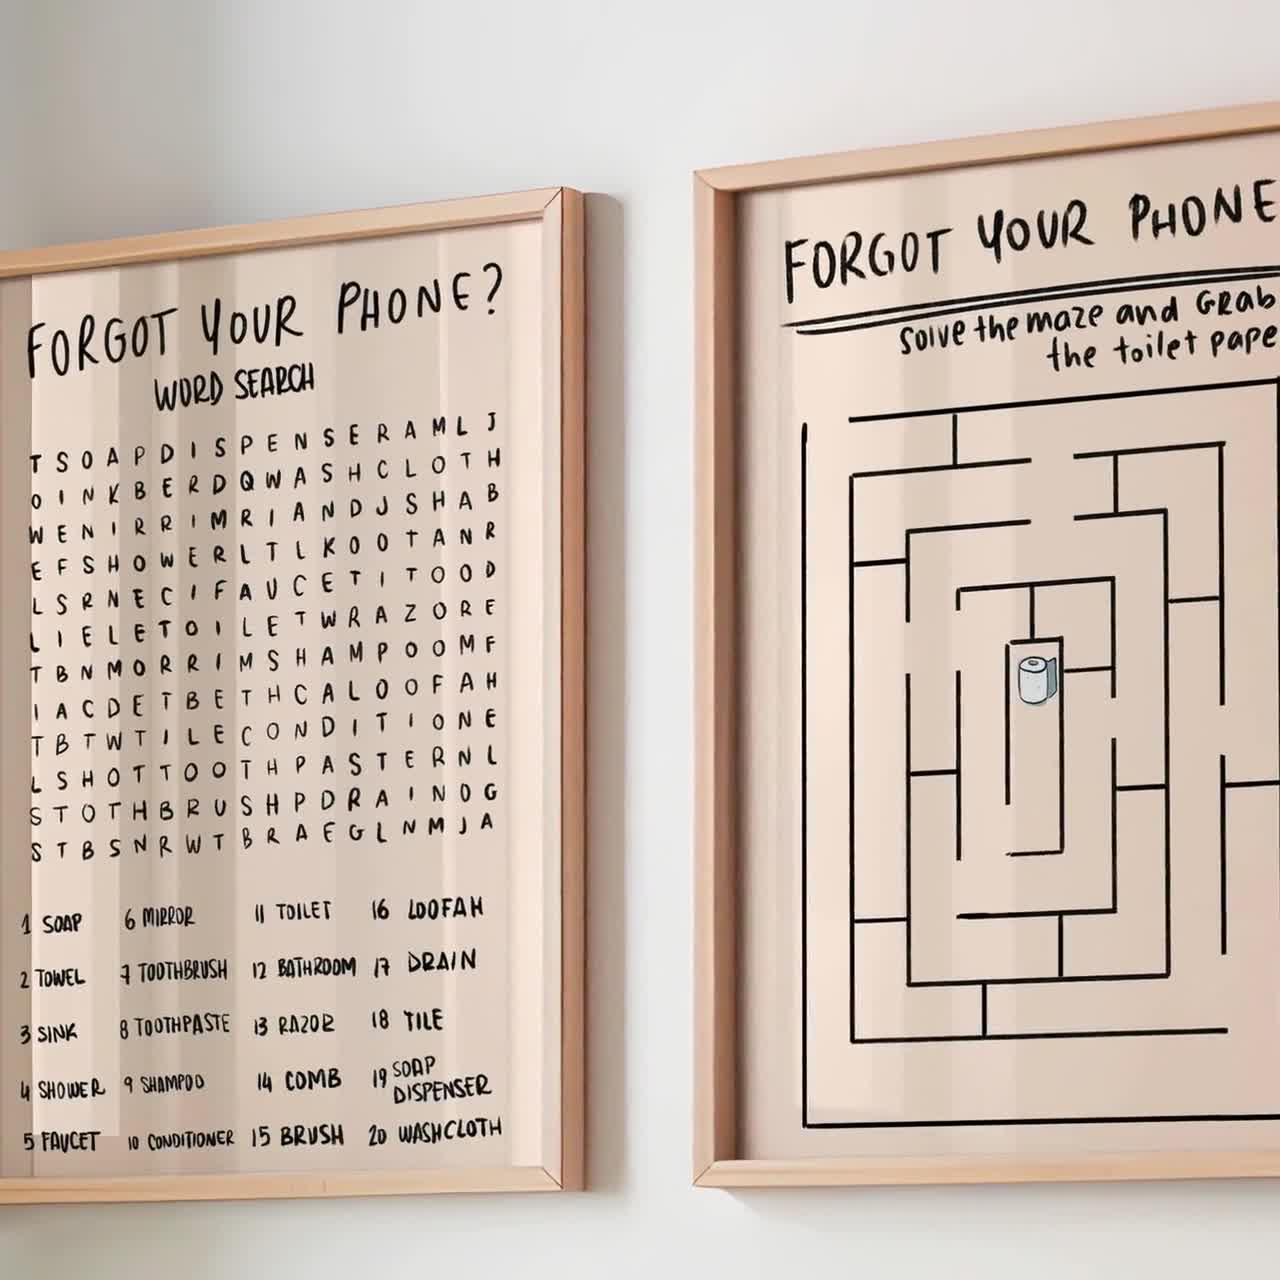 FORGOT YOUR PHONE?
WORD SEARCH
T S O A P D I S P E N S E R A M L J
O I N K B E R D Q W A S H C L O T H
W E N I R R I M R I A N D J S H A B
E F S H O W E R L T L K O O T A N R
L S R N E C I F A U C E T I T O O D
L I E L E T O I L E T W R A Z O R E
T B N M O R R I M S H A M P O O M F
I A C D E T B E T H C A L O O F A H
T B T W T I L E C O N D I T I O N E
L S H O T T O O T H P A S T E R N L
S T O T H B R U S H P D R A I N O G
S T B S N R W T B R A E G L N M J A
1 SOAP 6 MIRROR 11 TOILET 16 LOOFAH
2 TOWEL 7 TOOTHBRUSH 12 BATHROOM 17 DRAIN
3 SINK 8 TOOTHPASTE 13 RAZOR 18 TILE
4 SHOWER 9 SHAMPOO 14 COMB 19 SOAP DISPENSER
5 FAUCET 10 CONDITIONER 15 BRUSH 20 WASHCLOTH
FORGOT YOUR PHONE
Solve the maze and GRAB
the toilet pape